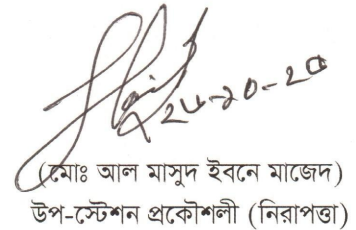 ২৬-১০-২০
(মোঃ আল মাসুদ ইবনে মাজেদ)
উপ-স্টেশন প্রকৌশলী (নিরাপত্তা)